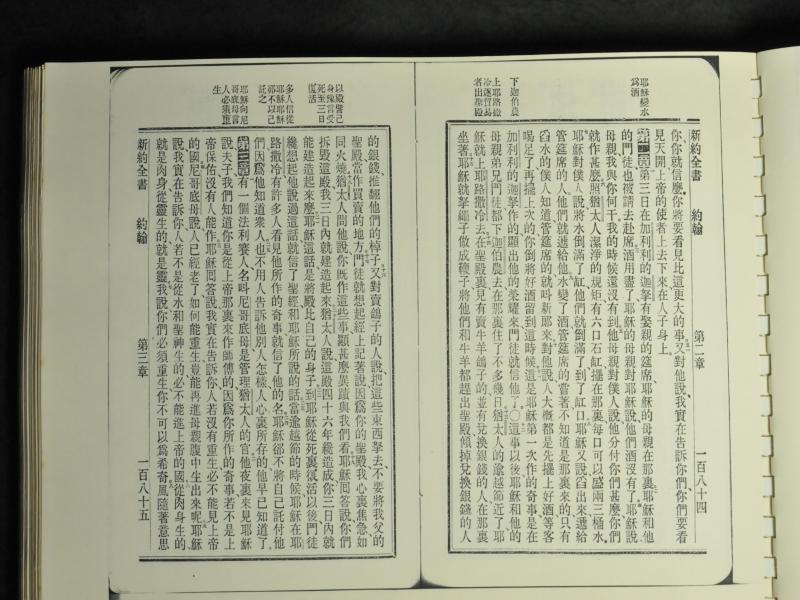 新約全書 約翰 第二章 一百八十四
耶穌變水
爲酒
下迦伯農
上耶路撒
冷逐貿易
者出聖殿
你你就信麽你將要看見比這更大的事又對他說我實在告訴你們你們要看
見天開上帝的使者上去下來在人子身上
第二章第三日在加利利的迦拏有娶親的筵席耶穌的母親在那裏耶穌和他
的門徒也被請去赴席酒用盡了耶穌的母親對耶穌說他們酒沒有了耶穌說
母親我與你何干我的時候還沒有到他母親對僕人說他分付你們甚麽你們
就作甚麽照猶太人潔淨的規矩有六口石缸擺在那裏每口可以盛兩三桶水
耶穌對僕人說將水倒滿了缸他們就倒滿了到了缸口耶穌又說舀出來遞給
管筵席的人他們就遞給他水變了酒管筵席的嘗著不知道是那裏來的只有
舀水的僕人知道管筵席的就呌新郎來對他說人大槪都是先擺上好酒等客
喝足了再擺上次的你倒將好酒留到這時候這是耶穌第一次作的奇事是在
加利利的迦拏作的顯出他的榮耀來門徒就信他了〇這事以後耶穌和他的
母親弟兄門徒都下迦伯農去在那裏住了不多幾日猶太人的逾越節近了耶
穌就上耶路撒冷去在聖殿裏見有賣牛羊鴿子的並有兌換銀錢的人在那裏
坐著耶穌就拏繩子做成鞭子將他們和牛羊都趕出聖殿傾掉兌換銀錢的人
以殿譬己
身豫言受
死至三日
復活
多人信從
耶穌耶穌
卻不以己
託之
耶穌向尼
哥底母言
人必須重
生
的銀錢推翻他們的棹子又對賣鴿子的人說把這些東西拏去不要將我父的
聖殿當作買賣的地方門徒就想起經上記著說因爲你的聖殿我心裏焦急如
同火燒猶太人問他說你既作這些事顯甚麽異蹟與我們看耶穌回答說你們
拆毁這殿我三日內就建造起來猶太人說這殿四十六年纔造成你三日內就
能建造起來麽耶穌這話是將殿比自己的身子到耶穌從死裏復活以後門徒
纔想起他說過這話就信了聖經和耶穌所說的話當逾越節的時候耶穌在耶
路撒冷有許多人看見他所作的奇事就信了他的名耶穌卻不將自己託付他
們因爲他知道衆人也不用人告訴他別人怎樣人心裏所存的他早已知道了
第三章有一個法利賽人名呌尼哥底母是管理猶太人的官他夜裏來見耶穌
說夫子我們知道你是從上帝那裏來作師傅的因爲你所作的奇事若不是上
帝保佑沒有人能作耶穌回答說我實在告訴你人若沒有重生必不能見上帝
的國尼哥底母說人已經老了如何能重生豈能再進母親腹中生出來呢耶穌
說我實在告訴你人若不是從水和聖神生的必不能進上帝的國從肉身生的
就是肉身從靈生的就是靈我說你們必須重生你不可以爲希奇風隨著意思
新約全書 約翰 第三章 一百八十五